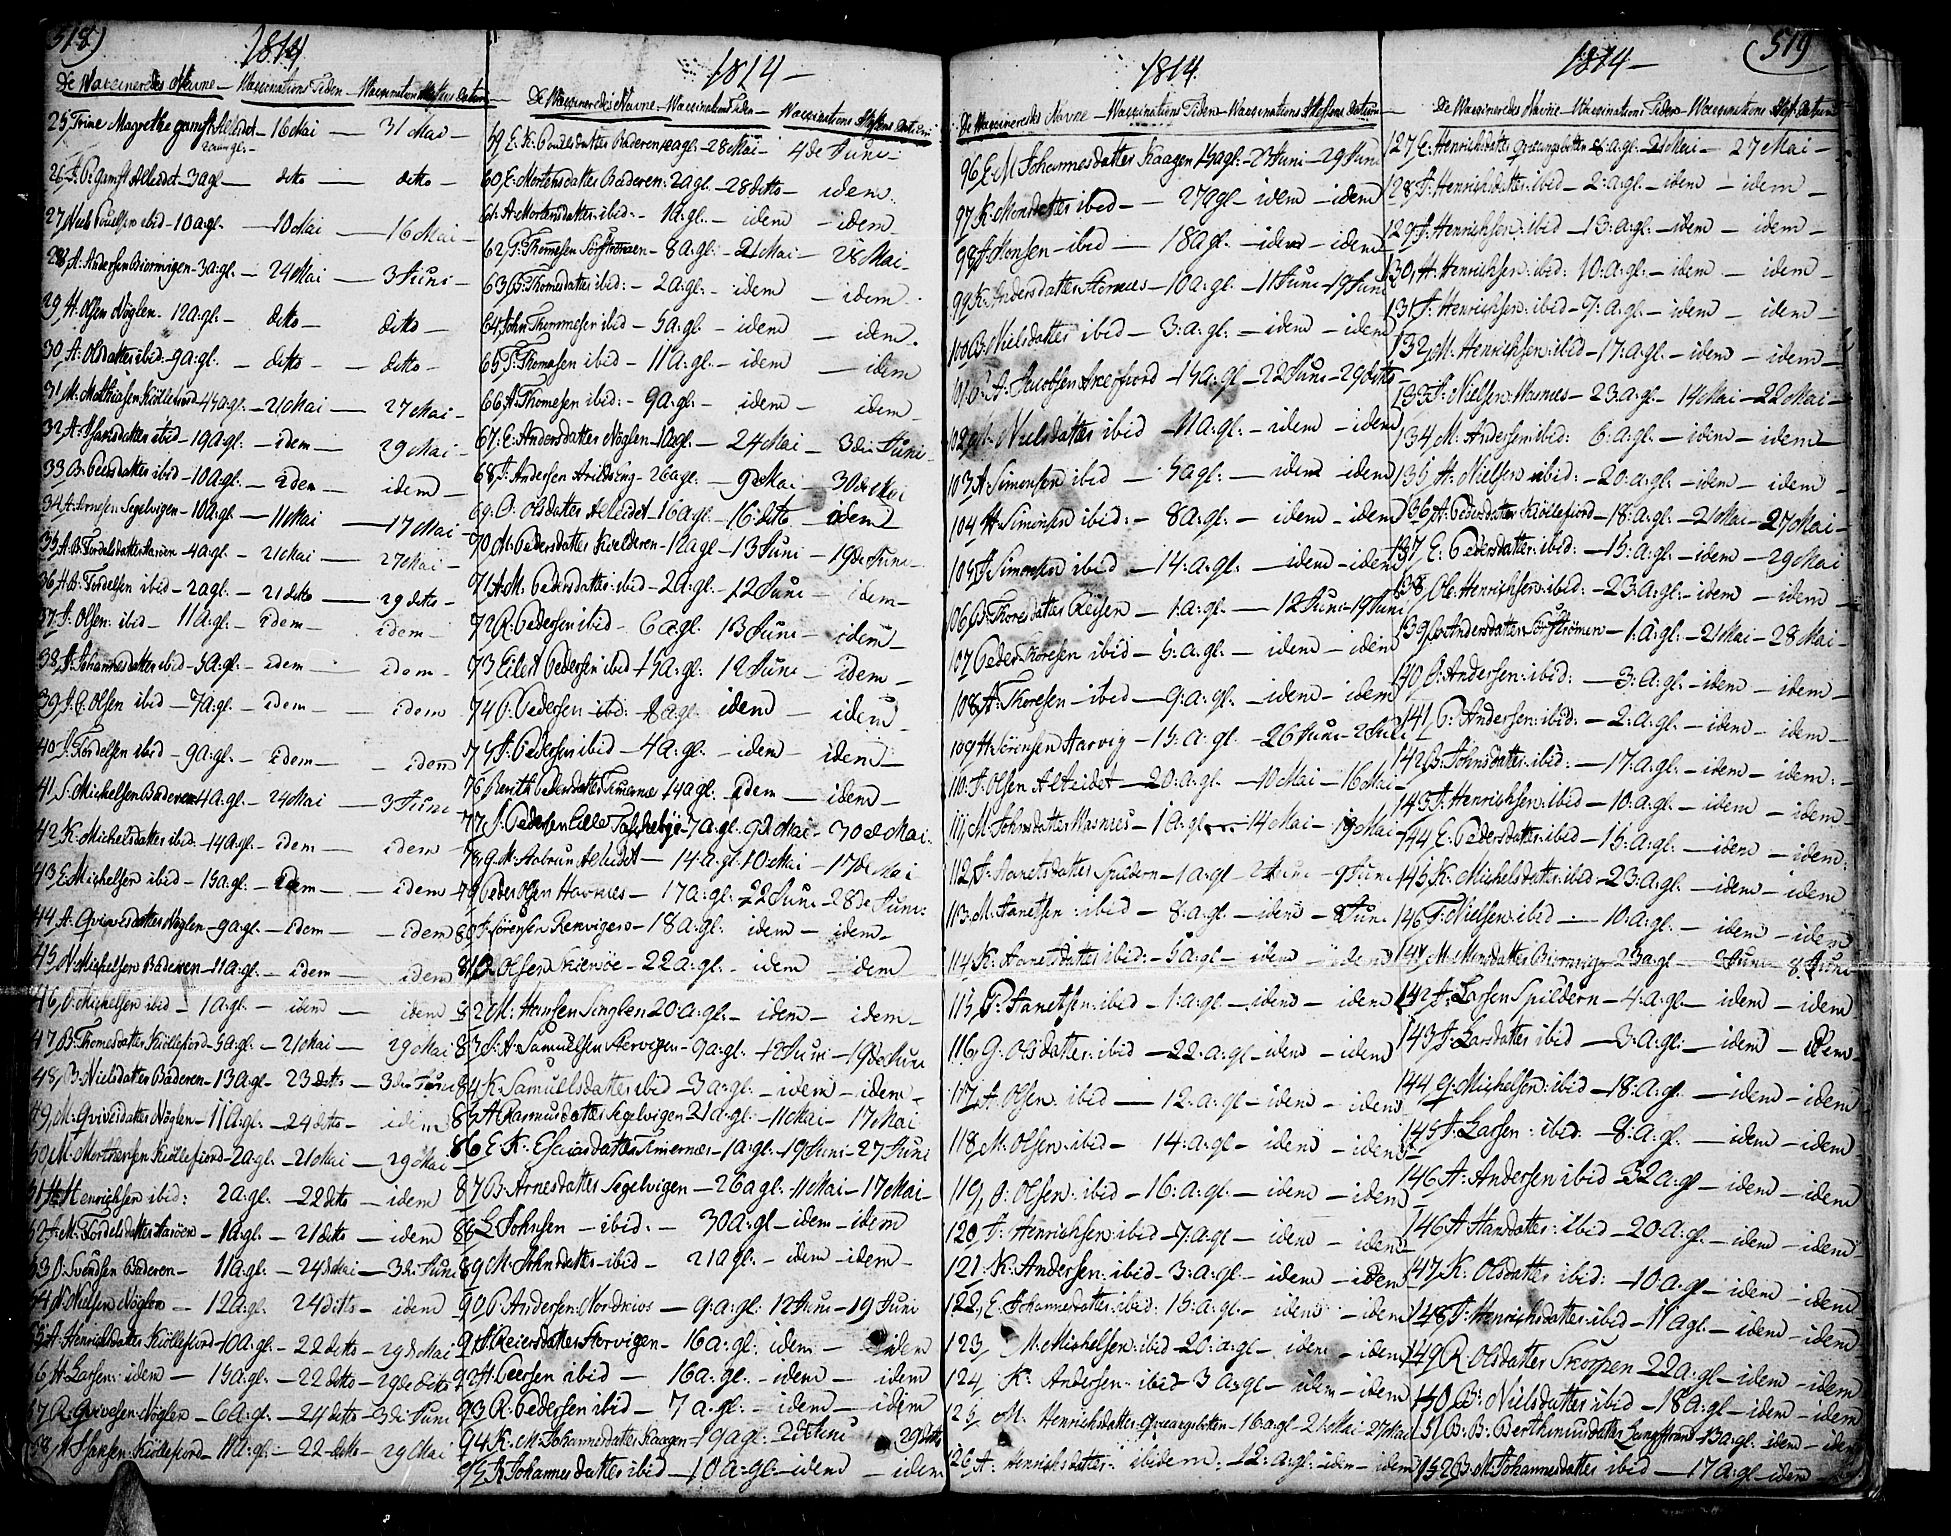 518)
1814
De Waccineredes Navne — Waccinations Tiden — Waccinations Attestens Datum
25, Trine Magrethe Gamst Alteidet — 16 Mai — 31 Mai —
26, Gamst Alteidet — 3 agl — ditto — ditto —
27, Niels Poulsen ibid — 10 a:gl. — 10 Mai — 16 Mai —
28, A: Andersen Biornvigen — 3 a:gl. — 24 Mai — 3 Juni —
29, H: Olsen Nöglen — 12 a:gl. — ditto — ditto —
30, A: Olsdatter ibid — 9 a:gl. — ditto — ditto —
31, M: Matthiasen Kiöllefiord — 21 Mai — 27 Mai —
32, A: Hansdatter ibid — 19 a:gl. — idem — 29 Mai —
33, B: Pedersdatter ibid — 10 a:gl. — idem — idem —
34, A: Arnesen Segelvigen — 10 a:gl. — 11 Mai — 17 Mai —
35, A: B: Tordelsdatter Aaröen — 4 a:gl. — 21 Mai — 27 Mai —
36, H: A: Tordelsen ibid — 2 agl. — 21 ditto — 29 ditto —
37, J: Olsen ibid — 11 a:gl. — idem — idem —
38, J: Johannesdatter ibid — 5 a:gl. — idem — idem —
39, J: C: Olsen ibid — 7 a:gl. — idem — idem
40, J: Tordelsen ibid — 9 a:gl. — idem — idem
41, S: Michelsen Baderen — 4 a:gl. — 24 Mai — 3 Juni
42, K: Michelsdatter ibid — 14 a:gl. — idem — idem —
43, E: Michelsen ibid — 15 a:gl. — idem — idem
44, A: Qvivesdatter Nöglen — 9 a:gl. — idem — idem
45, N: Michelsen Baderen — 11 a:gl. — idem — idem
46, O: Michelsen ibid — 1 a:gl. — idem — idem
47, B: Thomesdatter Kiöllefiord — 5 a:gl. — 21 Mai — 29 Mai
48, B: Nielsdatter Baderen — 13 a:gl. — 23 ditto — 3 de Juni
49, M: Qvivesdatter Nöglen — 11 a:gl. — 24 ditto — idem
50, M: Morthensen Kiöllefiord — 2 a:gl. — 21 Mai — 29 Mai —
51, H: Henrichsen ibid: 2 a:gl. — 22 ditto — idem
52, J: M: Tordelsdatter Aaröen — 1 a:gl. — 21 ditto — idem
53, O: Svendsen Baderen — 11 a:gl. — 24 de Mai — 3 de Juni
54, N: Nielsen Nöglen — 12 a:gl. 24 ditto — idem
55, A: Henrichsdatter Kiöllefiord — 10 a:gl. — 22 ditto — 29 de Mai
56, H: Larsen: idem — 15 a:gl. — 22 ditto — 29 de ditto
57, R: Qvivesen Nöglen — 6 a:gl. — 24 ditto — 3 de Juni
58, M: Hansen Kiöllefiord — 11 a:gl. — 22 ditto — 29 Mai
1814 —
De Waccineredes Navne — Waccinations Tiden — Waccinations Attestens Datum
59, E: K: Poulsdatter Baderen 12 agl. — 28 Mai — 4 de Juni
60, E: Mortensdatter Baderen: 2 agl. — 28 ditto — idem
61, A: Mortensdatter: ibid: — 1 a:gl. — idem — idem
62, T: Thomesen Sörströmen — 8 a:gl. — 21 Mai — 28 Mai —
63, B: Thomesdatter ibid: — 2 a:gl. — idem — idem
64, John Thommesen ibid — 5 a:gl. — idem — idem
65, P: Thomesen ibid — 11 a:gl. — idem — idem
66, A: Thomesen ibid: — 9 a:gl. — idem — idem —
67, E: Andersdatter Nöglen — 10 agl. — 24 Mai 3 de Juni
68, J: Andersen — 26 agl. — 9 de Mai — 30 de Mai
69, O: Olsdatter Alteidet — 16 agl. — 16 ditto — idem
70, M: Pedersdatter Kielderen — 12 agl — 13 Juni — 19 de Juni
71, A: M: Pedersdatter: ibid — 2 a:gl. — 12 Juni — idem —
72, R: Pedersen ibid — 6 a:gl. 13 Juni — idem —
73, Eilert Pedersen ibid — 15 a:gl. 12 Juni — idem —
74, O: Pedersen ibid: — 8 a:gl. idem — idem
75, J: Pedersen ibid — 4 a:gl. — idem — idem —
76, Berith Pedersdatter — 14 agl. idem — idem —
77, J: Pedersen Lille — 7 a:gl. 9 de Mai — 30 de Mai.
78, G: M: Aabrun Alteidet — 14 a:gl. 10 Mai — 17 de Mai
79, Peder Olsen Havnæs — 17 a:gl. — 22 Juni — 28 de Juni
80, J: Sörensen Renvigen — 18 a:gl. idem — idem —
81, O: Olsen — 22 a:gl. — idem — idem
82, M: Hansen Singlen 20 a:gl. — idem — idem —
83, S: A: Samuelsen Storvigen — 9 a:gl. — 12 Juni — 19 de Juni
84, K: Samuelsdatter ibid — 3 a:gl. — idem — idem —
85, A: Rasmusdatter Segelvigen — 21 a:gl. — 11 Mai — 17 Mai
86, E: K: Esaiasdatter — 1 a:gl. — 19 Juni — 27 Juni
87, B: Arnesdatter Segelvigen — 26 agl. — 11 Mai — 17 Mai —
88, L: Johnsen — ibid: — 30 a:gl — idem — idem
89, M: Johnsdatter — ibid — 21 a:gl. — idem — idem —
90, P: Andersen: Nordreios — 9: a:gl: 12 Juni — 19 Juni
91, Storvigen — 16 a:gl. idem — idem
92, H: Peersen ibid — 16 a:gl. — idem — idem
93, R: Pedersen ibid — 7 a:gl. — idem — idem
94, K: M: Johannesdatter Kaagen — 19 a:gl. 22 Juni 29 ditto
95, K: Johannesdatter ibid — 10 a:gl. — idem — idem
1814.
De Waccineredes Navne — Waccinations Tiden — Waccinations Attestens Datum
96, E: M: Johannesdatter Kaagen 15 agl — 23 Juni — 29 Juni
97, K: Monsdatter ibid — 27 agl — idem — idem
98, J: Monsen — ibid — 18 a:gl. — idem — idem
99, K: Andersdatter — 10 a:gl. — 11 Juni — 19 Juni
100, B: Nielsdatter ibid — 3: a:gl. — idem — idem
101, A: Jacobsen — 15 a:gl — 22 Juni — 29 ditto
102, Nielsdatter ibid — 11 a:gl. — idem — idem
103, A: Simonsen ibid — 5 a:gl. — idem — idem
104, H: Simonsen ibid: — 8 a:gl. — idem — idem
105, J: Simonsen ibid — 14: a:gl. — idem — idem
106, B: Thoresdatter Reisen — 1: a:gl. — 12 Juni — 19 Juni
107, Peder Thoresen ibid — 5: a:gl. — idem — idem
108, A: Thoresen — ibid — 9: a:gl. — idem — idem
109, H: Sörensen Aarvig — 15: a:gl. — 26 Juni — 2 Juli
110, J: Olsen Alteidet — 20: a:gl. — 10 Mai — 16 Mai —
111, M: Johnsdatter — 1 a:gl. — 14 Mai — 19 Mai —
112, Spildern — 1 a:gl — 2 Juni — 9 Juni
113, M: Aanetsen: ibid — 8: a:gl. — idem — 8 Juni
114, K: Aanetsdatter ibid: — 5 a:gl. — idem — idem
115, P: Aanetsen: ibid — 1: a:gl. — idem — idem
116, G: Olsdatter: ibid — 22: a:gl — idem — idem
117, A: Olsen: ibid — 12: a:gl — idem — idem
118, M: Olsen: ibid — 14: a:gl — idem — idem
119, O: Olsen: ibid — 16: a:gl. — idem — idem
120, J: Henrichsen: ibid — 7: a:gl. — idem — idem
121, K: Andersen: ibid — 3: a:gl — idem — idem
122, E: Johannesdatter: ibid: 15: a:gl. — idem — idem
123, M: Michelsen: ibid — 20: a:gl — idem — idem
124, K: Andersen: ibid — 3 a:gl — idem — idem
125, M: Henrichsdatter Qvænangsbotten — 16 a:gl — 21 Mai 27 Mai
126, A: Henrichsdatter: ibidem: 12: a:gl: idem — idem
519)
1814 —
De Waccineredes Navne — Waccinations Tiden — Waccinations Attest: Datum
127, E: Henrichsdatter Qvænangsbotten — 21 Mai — 27 Mai —
128, J: Henrichsen: ibid — 2: a:gl. — idem — idem —
129, J: Henrichsen: ibid — 13: a:gl. — idem — idem —
130, H: Henrichsen: ibid: 10: a:gl. — idem — idem —
131, J: Henrichsen: ibid — 7: a:gl. — idem — idem —
132, M: Henrichsen: ibid — 17: a:gl. — idem — idem —
133, J: Nielsen: — 23: a:gl. — 14 Mai — 22 Mai —
134, M: Andersen: ibid: 6: a:gl. — idem — idem —
135, A: Nielsen ibid: — 20: a:gl — idem — idem —
136, A: Pedersdatter Kiöllefiord — 18: a:gl. — 21 Mai — 27 Mai —
137, E: Pedersdatter: ibid: — 15: a:gl. — idem — 29 Mai
138, Ole: Henrichsen: ibid: — 23: a:gl. — idem — idem —
139, Andersdatter Sörströmen — 1: a:gl. — 21 Mai — 28 Mai —
140, O: Andersen: ibid: — 3: a:gl. — idem — idem —
141, P: Andersen: ibid: — 2: a:gl. — idem — idem —
142, B: Johnsdatter: ibid: — 17: a:gl. — idem — idem:
143, J: Henrichsen: ibid — 10: a:gl. — idem — idem —
144, E: Pedersdatter: ibid — 15: a:gl. — idem — idem:
145, K: Michelsdatter: ibid — 23: a:gl. — idem — idem
146, T: Nielsen: ibid — 10: a:gl. — idem — idem
147, M: Monsdatter Biornvig — 23 a:gl — 2 Juni — 8 Juni
142, J: Larsen Spildern — 4: a:gl. — idem — idem
143, J: Larsdatter ibid — 3: a:gl. — idem — idem —
144, G: Michelsen: ibid — 18: a:gl — idem — idem
145, J: Larsen: ibid: 8: a:gl. — idem — idem
146, A: Andersen ibid — 32 a:gl — idem — idem
146, A: Hansdatter: ibid — 20 a:gl. — idem — idem
147, K: Olsdatter ibid: — 10 a:gl — idem — idem
148, J: Henrichsdatter: ibid — 11 a:gl — idem — idem
149, R: Olsdatter Skorpen — 22 a:gl — idem — idem
150, B: Nielsdatter ibid — 18 a:gl — idem — idem
151, B: B: Berthiniusdatter Langstrand 13 a:gl. idem — idem
152, B: M: Johannesdatter ibid — 17 a:gl — idem —